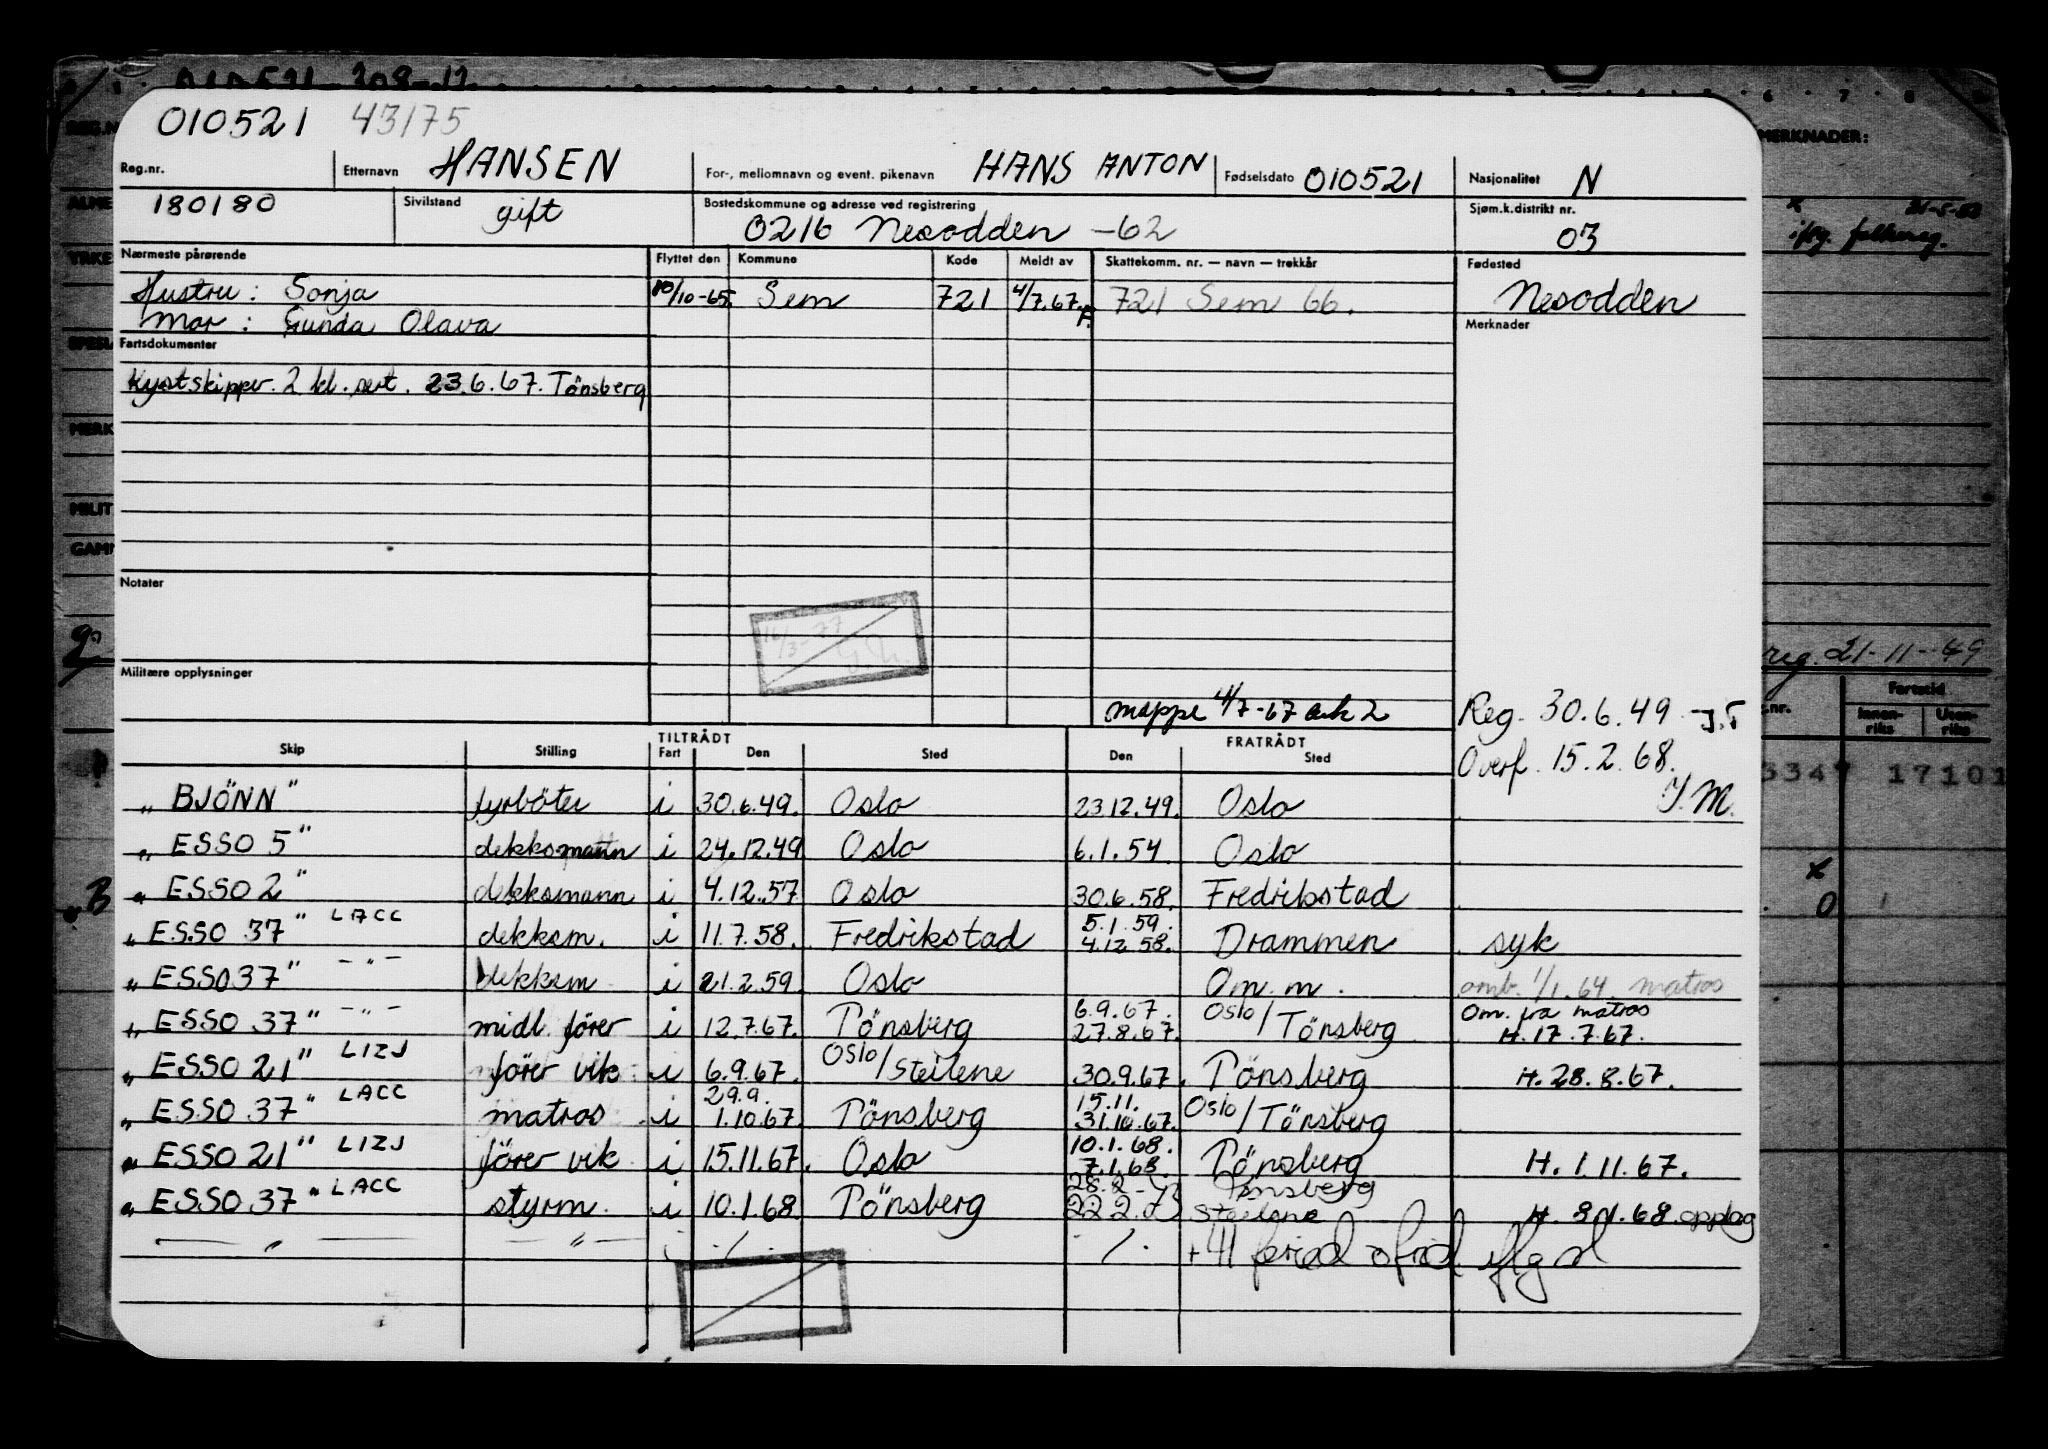 010521 43175
Reg.nr. Etternavn HANSEN For-, mellomnavn og event. pikenavn HANS ANTON Fødselsdato 010521 Nasjonalitet N
180180 Sivilstand gift Bostedskommune og adresse ved registrering 0216 Nesodden -62 Sjøm.k.distrikt nr. 03
Nærmeste pårørende Flyttet den Kommune Kode Meldt av Skattekomm. nr. — navn — trekkår Fødested
Hustru: Sonja 10/10-65. Sem 721 4/7.67. 721 Sem 66. Nesodden
Mor: Gunda Olava
Fartsdokumenter Merknader
Kystskipper. 2 kl. sert. 23.6.67. Tönsberg
Notater
16/3-77
Militære opplysninger
mappe 4/7-67 ark 2 Reg. 30.6.49 - J.T
Overf. 15.2.68.
Y.M.
TILTRÅDT FRATRÅDT
Skip Stilling Fart Den Sted Den Sted
„ BJÖNN" fyrböter i 30.6.49. Oslo 23.12.49. Oslo
„ ESSO 5" dekksmann i 24.12.49 Oslo 6.1.54 Oslo
„ ESSO 2" dekksmann i 4.12.57 Oslo 30.6.58. Fredrikstad
„ ESSO 37" LACC dekksm. i 11.7.58. Fredrikstad 5.1.59. 4.12.58. Drammen syk
„ ESSO 37" -"- dekksm i 21.2.59. Oslo Om. m. omb. 1/1.64. matros
„ ESSO 37" -"- midl. förer i 12.7.67. Tönsberg 6.9.67. 27.8.67. Oslo/Tönsberg Om. fra matros
H. 17.7.67.
„ ESSO 21" LIZJ förer vik. i 6.9.67. Oslo/Steilene 30.9.67. Tönsberg H. 28.8.67.
„ ESSO 37" LACC matros i 29.9. 1.10.67. Tönsberg 15.11. 31.10.67. Oslo/Tönsberg
„ ESSO 21" LIZJ förer vik i 15.11.67. Oslo 10.1.68. 7.1.68. Tönsberg H. 1.11.67.
„ ESSO 37" LACC styrm. i 10.1.68. Tönsberg 28.2 - 73 22.2.73 Tönsberg Steilene H. 8.1.68. opplag
— " — — " — ./. ./. + 41
MERKNADER:
21-5-53
folkereg.
reg. 21-11-49
Fartstid
Innen-riks Uten-riks
17101